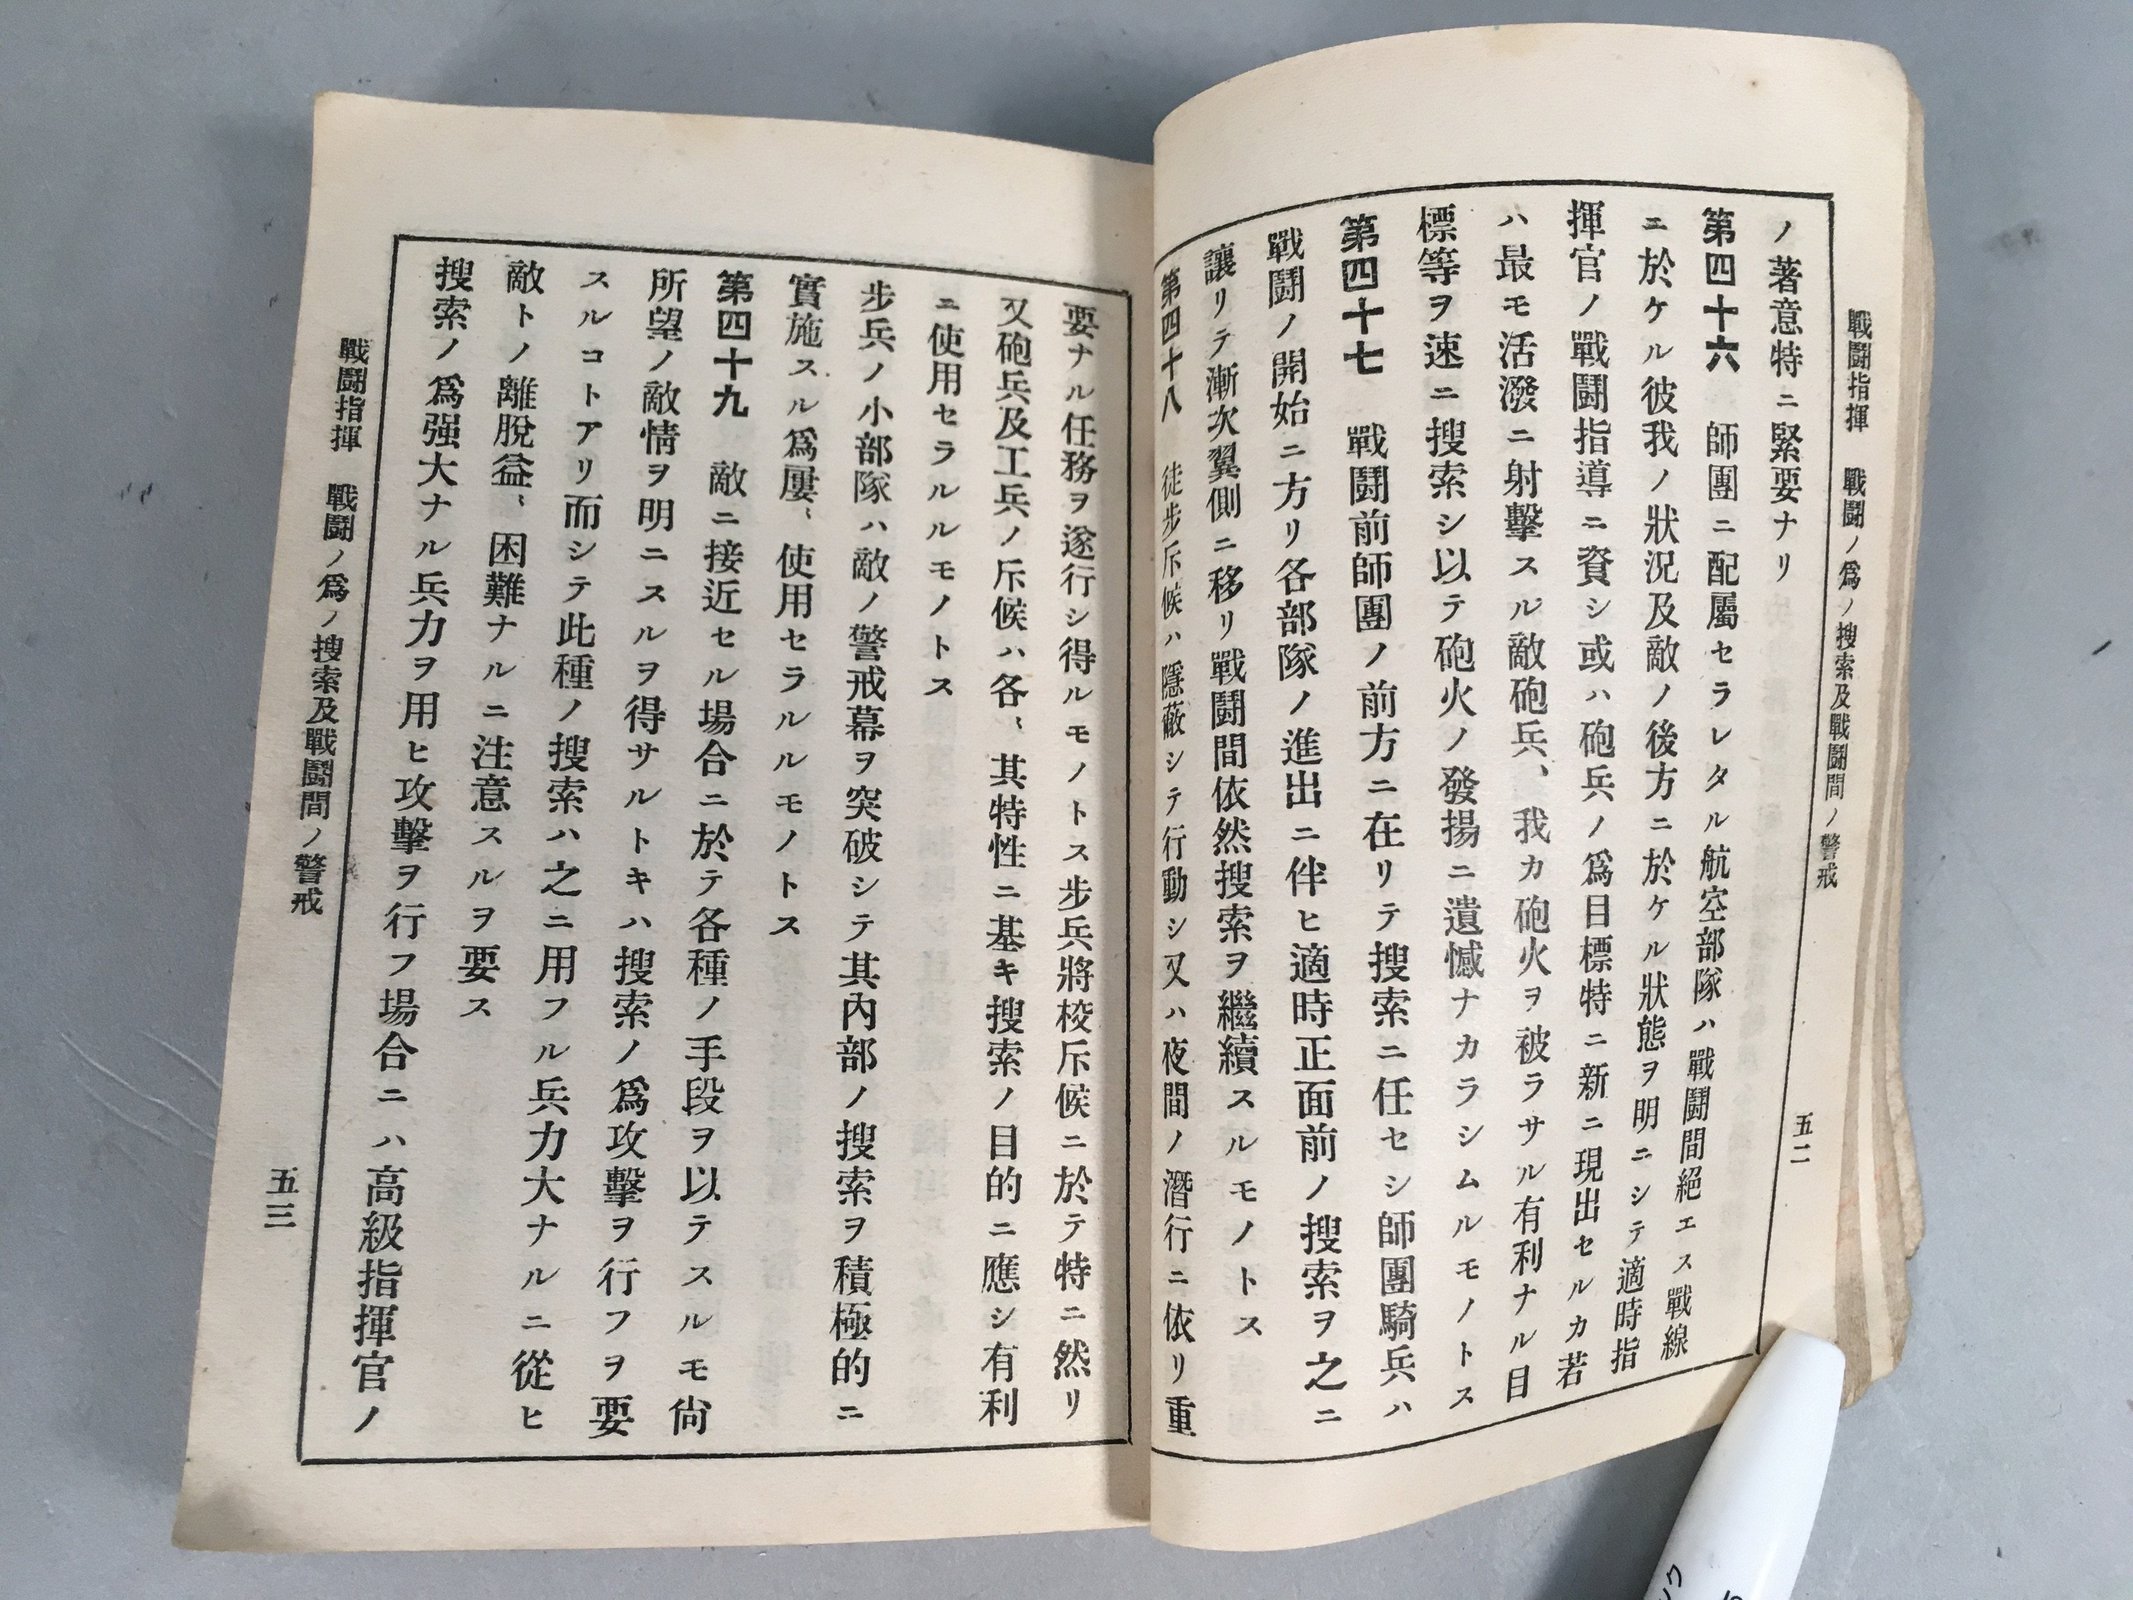 戰鬪指揮　戰鬪ノ爲ノ搜索及戰鬪間ノ警戒
五二
ノ著意特ニ緊要ナリ
第四十六　師團ニ配屬セラレタル航空部隊ハ戰鬪間絕エス戰線
ニ於ケル彼我ノ狀況及敵ノ後方ニ於ケル狀態ヲ明ニシテ適時指
揮官ノ戰鬪指導ニ資シ或ハ砲兵ノ爲目標特ニ新ニ現出セルカ若
ハ最モ活潑ニ射擊スル敵砲兵、我カ砲火ヲ被ラサル有利ナル目
標等ヲ速ニ搜索シ以テ砲火ノ發揚ニ遺憾ナカラシムルモノトス
第四十七　戰鬪前師團ノ前方ニ在リテ搜索ニ任セシ師團騎兵ハ
戰鬪ノ開始ニ方リ各部隊ノ進出ニ伴ヒ適時正面前ノ搜索ヲ之ニ
讓リテ漸次翼側ニ移リ戰鬪間依然搜索ヲ繼續スルモノトス
第四十八　徒步斥候ハ隱蔽シテ行動シ又ハ夜間ノ潛行ニ依リ重
要ナル任務ヲ遂行シ得ルモノトス步兵將校斥候ニ於テ特ニ然リ
又砲兵及工兵ノ斥候ハ各〻其特性ニ基キ搜索ノ目的ニ應シ有利
ニ使用セラルルモノトス
步兵ノ小部隊ハ敵ノ警戒幕ヲ突破シテ其內部ノ搜索ヲ積極的ニ
實施スル爲屢〻使用セラルルモノトス
第四十九　敵ニ接近セル場合ニ於テ各種ノ手段ヲ以テスルモ尙
所望ノ敵情ヲ明ニスルヲ得サルトキハ搜索ノ爲攻擊ヲ行フヲ要
スルコトアリ而シテ此種ノ搜索ハ之ニ用フル兵力大ナルニ從ヒ
敵トノ離脫益〻困難ナルニ注意スルヲ要ス
搜索ノ爲强大ナル兵力ヲ用ヒ攻擊ヲ行フ場合ニハ高級指揮官ノ
戰鬪指揮　戰鬪ノ爲ノ搜索及戰鬪間ノ警戒
五三